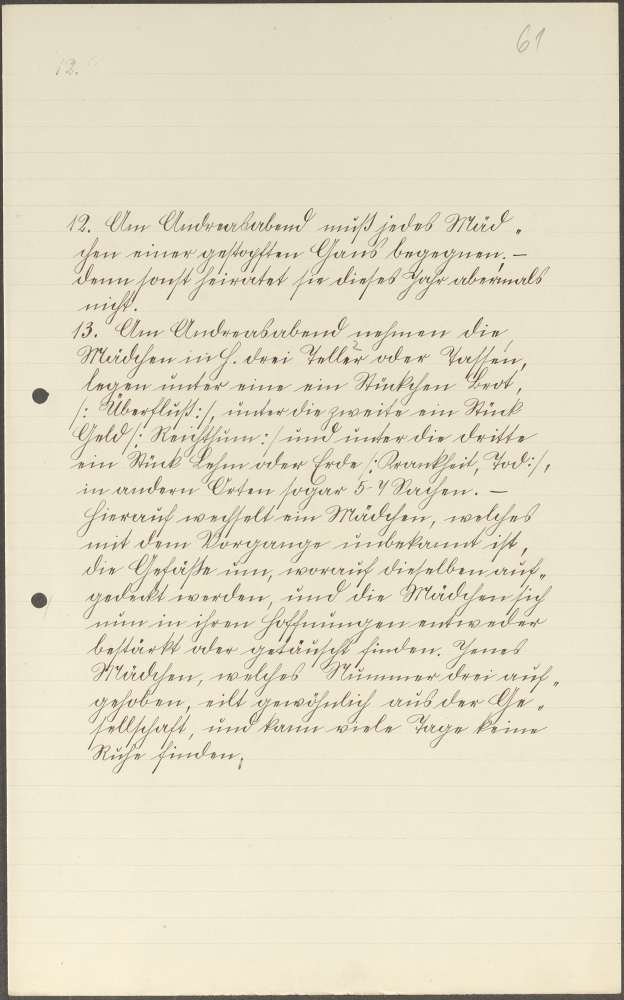 61
12.
12. Am Andreasabend muß jedes Mäd„
chen einer gestopften Gans begegnen, –
denn sonst heiratet sie dieses Jahr abermals
nicht.
13. Am Andreasabend nehmen die
Mädchen in H. drei Teller oder Tassen,
legen unter eine ein Stückchen Brot,
/: Überfluß :/, unter die zweite ein Stück
Geld /: Reichthum :/ und unter die dritte
ein Stück Lehm oder Erde /: Krankheit, Tod :/,
in andern Orten sogar 5-7 Sachen. –
Hierauf wechselt ein Mädchen, welches
mit dem Vorgange unbekannt ist,
die Gefäße um, worauf dieselben auf„
gedeckt werden, und die Mädchen sich
nun in ihren Hoffnungen entweder
bestärkt oder getäuscht finden. Jenes
Mädchen, welches Nummer drei auf„
gehoben, eilt gewöhnlich aus der Ge„
sellschaft, und kann viele Tage keine
Ruhe finden.